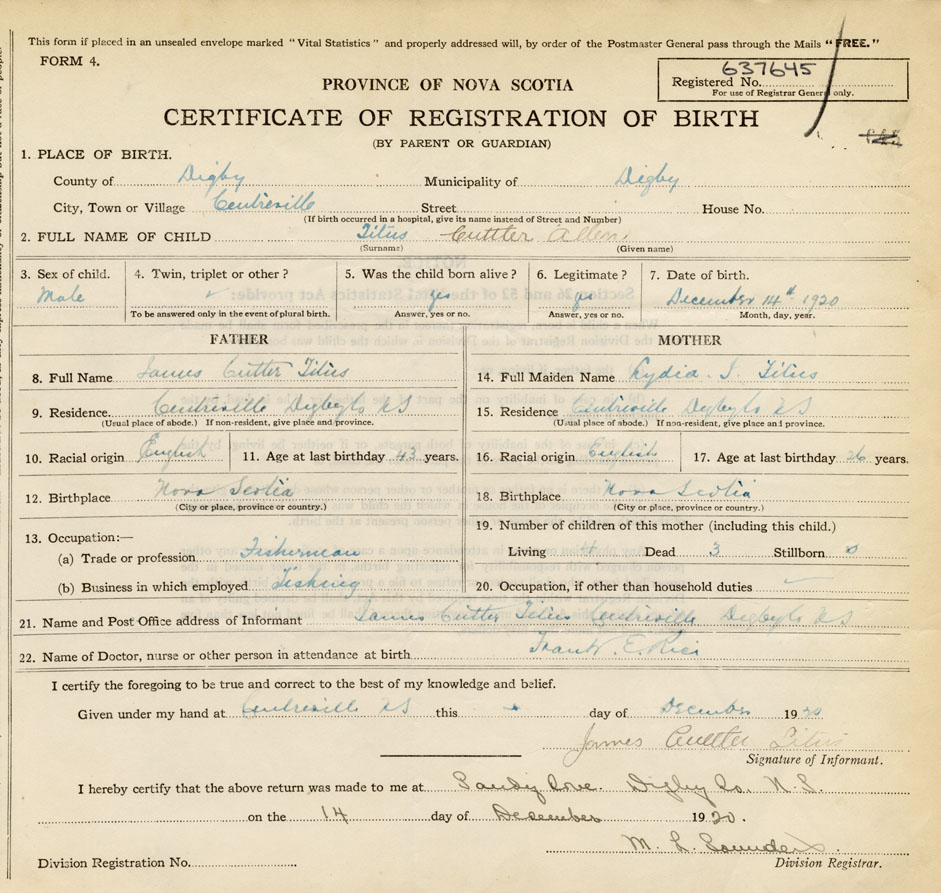 This form if placed in an unsealed envelope marked "Vital Statistics" and properly addressed will, by order of the Postmaster General pass through the Mails "FREE."
FORM 4.
637645
Registered No.
For use of Registrar General only.
PROVINCE OF NOVA SCOTIA
CERTIFICATE OF REGISTRATION OF BIRTH
(BY PARENT OR GUARDIAN)
1. PLACE OF BIRTH.
County of Digby Municipality of Digby
City, Town or Village Centreville Street House No.
(If birth occurred in a hospital, give its name instead of Street and Number)
2. FULL NAME OF CHILD Titus Cuttler Allen
(Surname) (Given name)
3. Sex of child. 4. Twin, triplet or other? 5. Was the child born alive? 6. Legitimate? 7. Date of birth.
Male yes yes December 14th 1920
To be answered only in the event of plural birth. Answer, yes or no. Answer, yes or no. Month, day, year.
FATHER MOTHER
8. Full Name James Cutter Titus 14. Full Maiden Name Lydia Titus
9. Residence Centreville Digby Co N S 15. Residence Centreville Digby Co N S
(Usual place of abode.) If non-resident, give place and province. (Usual place of abode.) If non-resident, give place and province.
10. Racial origin English 11. Age at last birthday 43 years. 16. Racial origin English 17. Age at last birthday 26 years.
12. Birthplace Nova Scotia 18. Birthplace Nova Scotia
(City or place, province or country.) (City or place, province or country.)
13. Occupation:— 19. Number of children of this mother (including this child.)
(a) Trade or profession Fisherman Living 4 Dead 3 Stillborn 0
(b) Business in which employed Fishing 20. Occupation, if other than household duties
21. Name and Post Office address of Informant James Cutter Titus Centreville Digby Co N S
22. Name of Doctor, nurse or other person in attendance at birth Frank E. Rice
I certify the foregoing to be true and correct to the best of my knowledge and belief.
Given under my hand at Centreville N S this day of December 1920
James Cuttler Titus
Signature of Informant.
I hereby certify that the above return was made to me at Sandy Cove. Digby Co. N. S.
on the 14 day of Desember 1920.
M. L. Saunders
Division Registration No. Division Registrar.